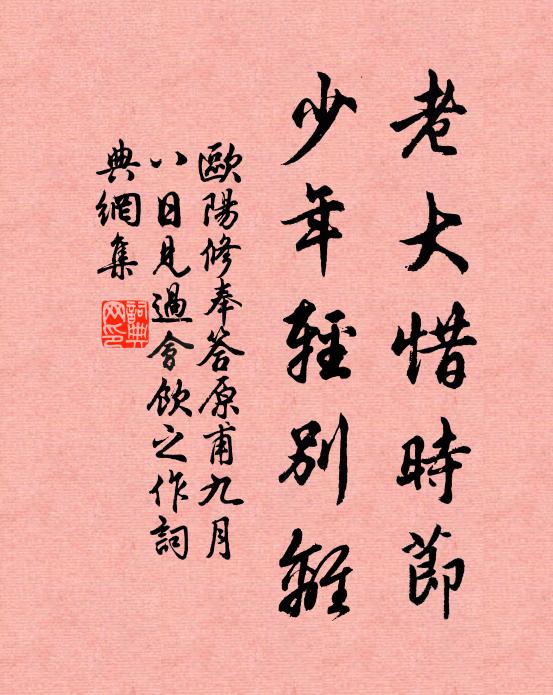 老大惜時節
少年輕別離
歐陽修奉答原甫九月
八日見過會飲之作詞
典網集
詞典
网印